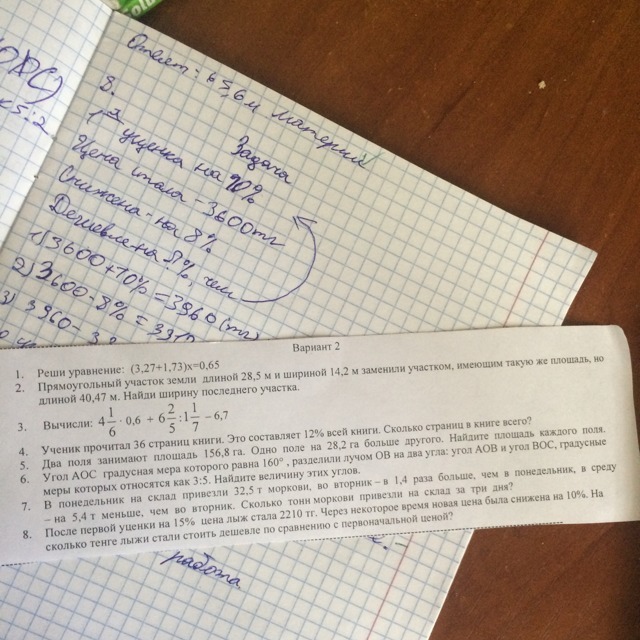 Ответ: 6,36 м материи
8.
Задача
уценка на 10%
Цена стала - 3600тг
Снижена - на 8%
Дешевле на 8%, чем
1) 3600+10% = 3960 (тг)
2) 3600-8% =
3) 3960-
Вариант 2
1. Реши уравнение: (3,27+1,73)х=0,65
2. Прямоугольный участок земли длиной 28,5 м и шириной 14,2 м заменили участком, имеющим такую же площадь, но
длиной 40,47 м. Найди ширину последнего участка.
3. Вычисли: 4 1/6 · 0,6 + 6 2/5 : 1 1/7 − 6,7
4. Ученик прочитал 36 страниц книги. Это составляет 12% всей книги. Сколько страниц в книге всего?
5. Два поля занимают площадь 156,8 га. Одно поле на 28,2 га больше другого. Найдите площадь каждого поля.
6. Угол АОС градусная мера которого равна 160°, разделили лучом ОВ на два угла: угол АОВ и угол ВОС, градусные
меры которых относятся как 3:5. Найдите величину этих углов.
7. В понедельник на склад привезли 32,5 т моркови, во вторник – в 1,4 раза больше, чем в понедельник, в среду
– на 5,4 т меньше, чем во вторник. Сколько тонн моркови привезли на склад за три дня?
8. После первой уценки на 15% цена лыж стала 2210 тг. Через некоторое время новая цена была снижена на 10%. На
сколько тенге лыжи стали стоить дешевле по сравнению с первоначальной ценой?
работа